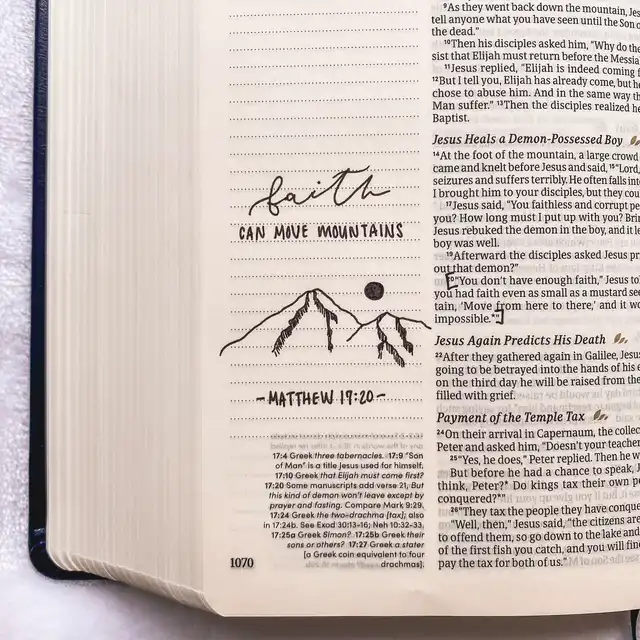 faith
CAN MOVE MOUNTAINS
-MATTHEW 17:20-
17:4 Greek three tabernacles. 17:9 "Son
of Man" is a title Jesus used for himself.
17:10 Greek that Elijah must come first?
17:20 Some manuscripts add verse 21, But
this kind of demon won't leave except by
prayer and fasting. Compare Mark 9:29.
17:24 Greek the two-drachma [tax]; also
in 17:24b. See Exod 30:13-16; Neh 10:32-33.
17:25a Greek Simon? 17:25b Greek their
sons or others? 17:27 Greek a stater
[a Greek coin equivalent to four
drachmas].
1070
9As they went back down the mountain, Jes
tell anyone what you have seen until the Son o
the dead."
10Then his disciples asked him, "Why do the
sist that Elijah must return before the Messia
11Jesus replied, "Elijah is indeed coming f
12But I tell you, Elijah has already come, but he
chose to abuse him. And in the same way th
Man suffer." 13Then the disciples realized he
Baptist.
Jesus Heals a Demon-Possessed Boy
14At the foot of the mountain, a large crowd
came and knelt before Jesus and said, 15"Lord,
seizures and suffers terribly. He often falls into
I brought him to your disciples, but they cou
17Jesus said, "You faithless and corrupt pe
you? How long must I put up with you? Brin
Jesus rebuked the demon in the boy, and it le
boy was well.
19Afterward the disciples asked Jesus pr
out that demon?"
20"You don't have enough faith," Jesus to
you had faith even as small as a mustard see
tain, 'Move from here to there,' and it wo
impossible.*"
Jesus Again Predicts His Death
22After they gathered again in Galilee, Jesu
going to be betrayed into the hands of his e
on the third day he will be raised from the
filled with grief.
Payment of the Temple Tax
24On their arrival in Capernaum, the collec
Peter and asked him, "Doesn't your teacher
25"Yes, he does," Peter replied. Then he w
But before he had a chance to speak, J
think, Peter?* Do kings tax their own pe
conquered?*"
26"They tax the people they have conque
"Well, then," Jesus said, "the citizens are
to offend them, so go down to the lake and
of the first fish you catch, and you will fin
pay the tax for both of us."